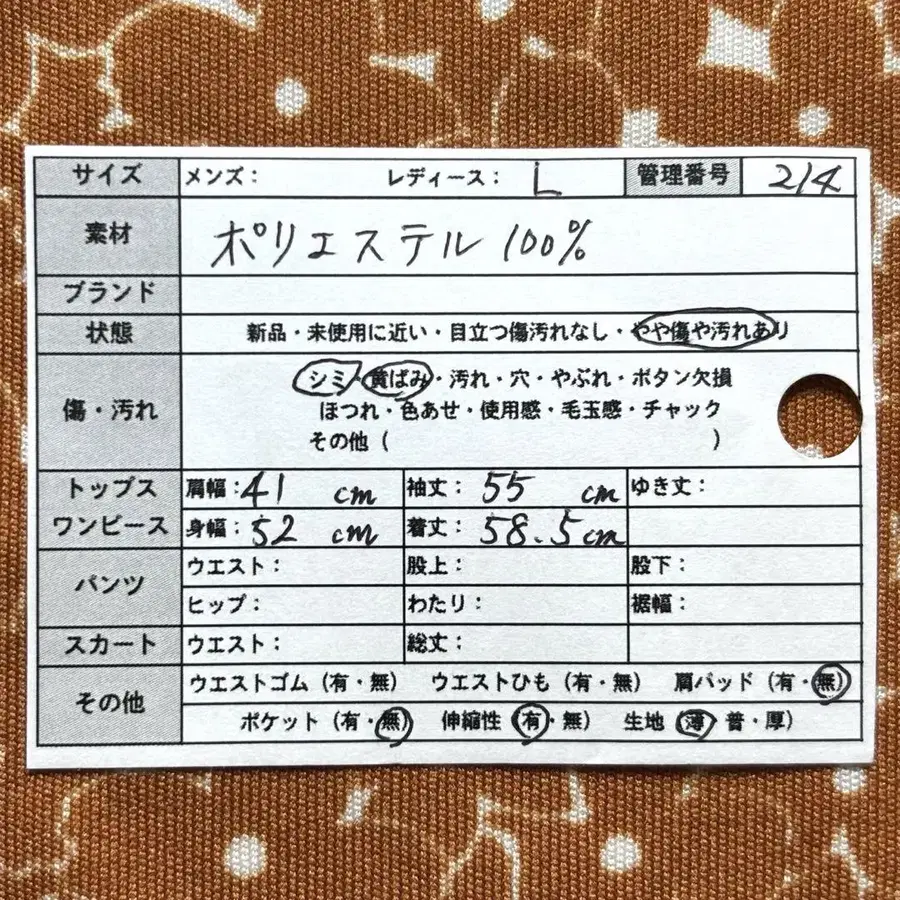 サイズ メンズ： レディース： L 管理番号 214
素材 ポリエステル 100%
ブランド
状態 新品・未使用に近い・目立つ傷汚れなし・やや傷や汚れあり
傷・汚れ シミ・黄ばみ・汚れ・穴・やぶれ・ボタン欠損
ほつれ・色あせ・使用感・毛玉感・チャック
その他（ ）
トップス 肩幅：41 cm 袖丈：55 cm ゆき丈：
ワンピース 身幅：52 cm 着丈：58.5cm
パンツ ウエスト： 股上： 股下：
ヒップ： わたり： 裾幅：
スカート ウエスト： 総丈：
その他 ウエストゴム（有・無） ウエストひも（有・無） 肩パッド（有・無）
ポケット（有・無） 伸縮性（有・無） 生地（薄・普・厚）